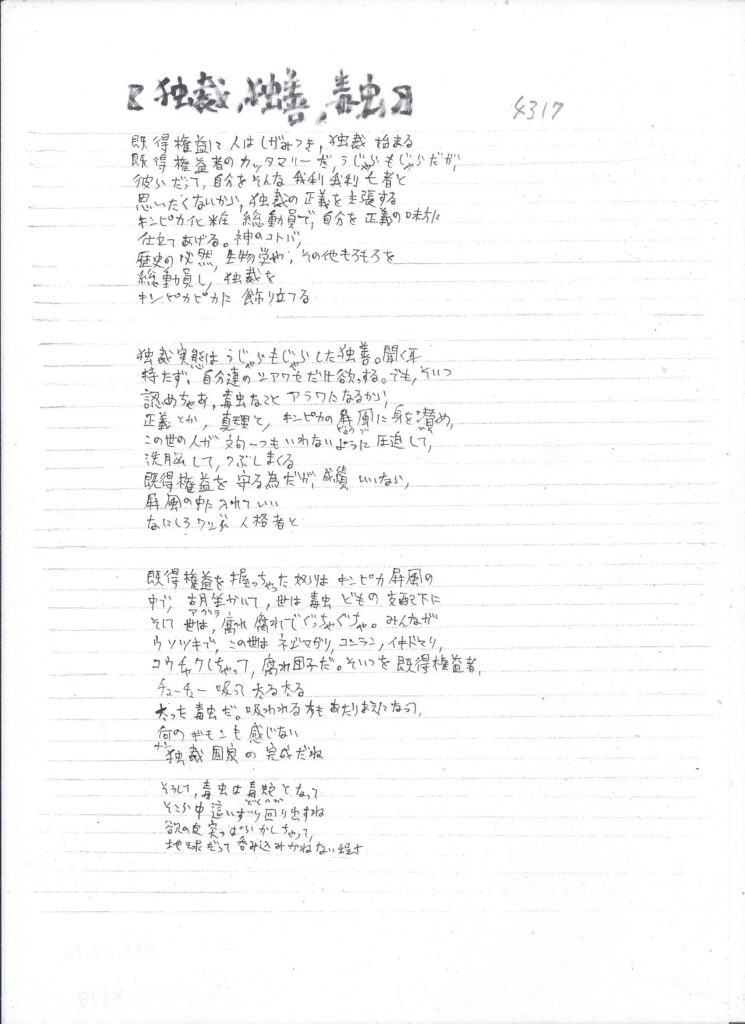 【独裁,独善,毒虫】
4317
既得権益に人はしがみつき,独裁 始まる
既得権益者のカッタマリーだ,うじゃらもじゃらだが,
彼らだって,自分をそんな我利我利亡者と
思いたくないから,独裁の正義を主張する
キンピカ化粧 総動員で,自分を正義の味方に
仕立てあげる。神のコトバ,
歴史の必然,生物学や,その他もろもろを
総動員し,独裁を
キンピカピカに飾り立てる
独裁実態はうじゃらもじゃらした独善。聞く耳
持たず,自分達のシアワセだけ欲っする。でも,そいつ
認めちゃあ,毒虫なこと アラワになるから,
正義とか,真理と,キンピカの屏風に身を潜め,
この世の人が文句一つもいわないように圧迫して,
洗脳して,つぶしまくる
既得権益を守る為だが,成績いいなら,
屏風の中に入れていい
なにしろ 人格者と
既得権益を握っちゃった奴らはキンピカ屏風の
中で,胡坐かいて,世は毒虫どもの支配下に
アグラ
そして世は,腐れ腐れでぐっちゃぐちゃ。みんなが
ウソツキで,この世はネジマガリ,コンラン,イキドマリ,
コウチャクしちゃって,腐れ団子だ。そいつを既得権益者,
チューチュー吸って太る太る
太った毒虫だ。吸われる方もあたりまえになって,
何のギモンも感じない
独裁国家の完成だね
そうして,毒虫は毒蛇となって
そこら中這いずり回り出すね
欲の皮突っぱらかしちゃって,
地球だって呑み込みかねない程さ